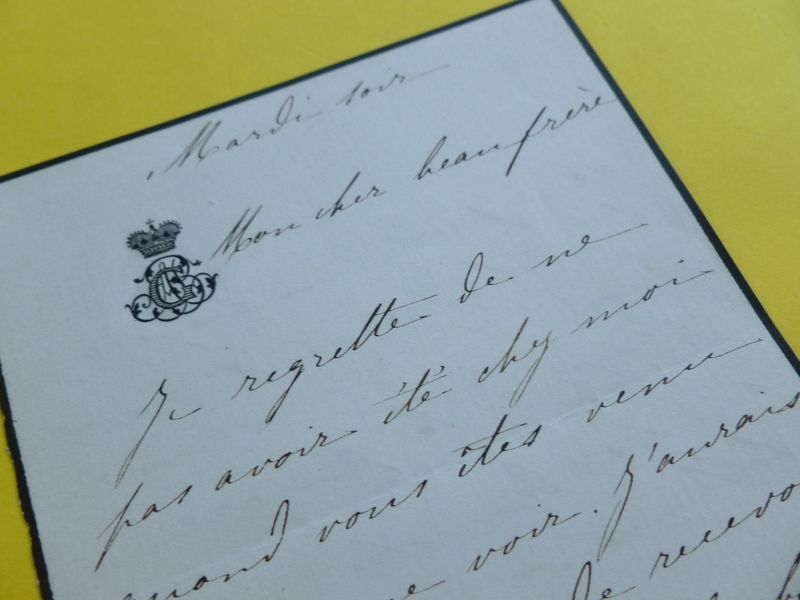 Mardi soir
Mon cher beaufrère
Je regrette de ne
pas avoir été chez moi
quand vous êtes venu
me voir. J'aurais
de recevo